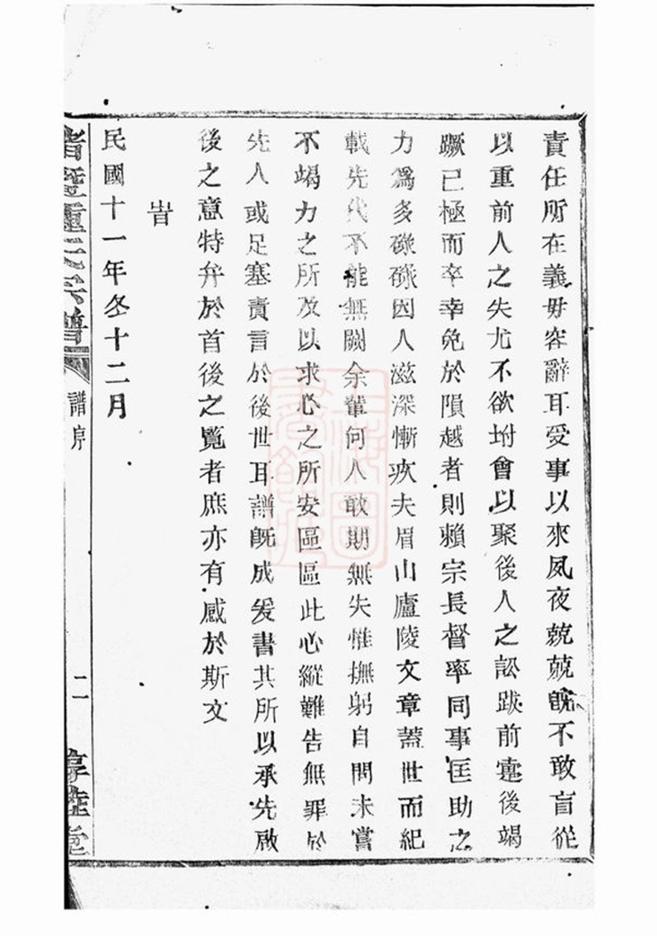 責任所在義毋容辭耳受事以來夙夜兢兢旣不敢盲從
以重前人之失尤不欲坿會以聚後人之訟跋前疐後竭
蹶已極而卒幸免於隕越者則賴宗長督率同事匡助之
力爲多碌碌因人滋深慚疚夫眉山廬陵文章蓋世而紀
載先代不能無闕余輩何人敢期無失惟撫躬自問未嘗
不竭力之所及以求心之所安區區此心縱難告無罪於
先人或足塞責言於後世耳譜旣成爰書其所以承先啟
後之意特弁於首後之覽者庶亦有感於斯文
旹
民國十一年冬十二月
譜序
二